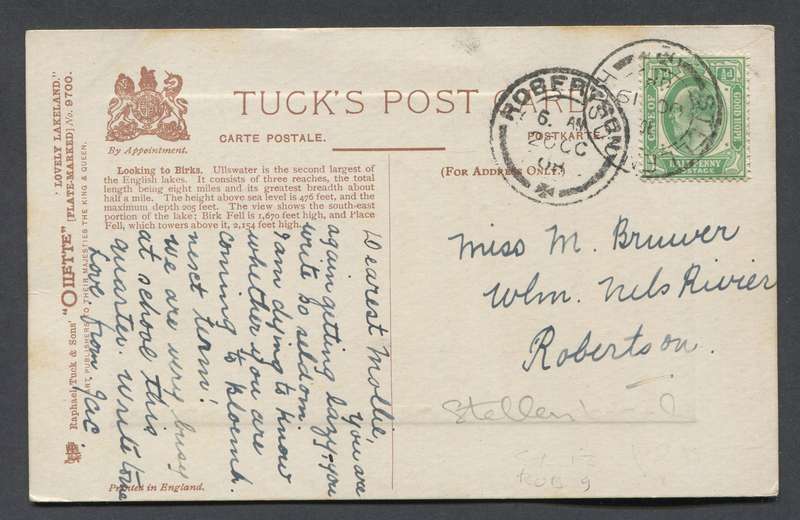 "LOVELY LAKELAND."
Raphael Tuck & Sons' "OILETTE" [PLATE-MARKED] No. 9700.
ART PUBLISHERS TO THEIR MAJESTIES THE KING & QUEEN.
By Appointment.
TUCK'S POST CARD
CARTE POSTALE.
POSTKARTE.
Looking to Birks. Ullswater is the second largest of
the English lakes. It consists of three reaches, the total
length being eight miles and its greatest breadth about
half a mile. The height above sea level is 476 feet, and the
maximum depth 205 feet. The view shows the south-east
portion of the lake; Birk Fell is 1,670 feet high, and Place
Fell, which towers above it, 2,154 feet high.
(FOR ADDRESS ONLY.)
ROBERTSON
6. AM
20 OC
08
CAPE OF
GOOD HOPE
HALFPENNY
POSTAGE
Dearest Mollie,
You are
again getting lazy; you
write so seldom.
I am dying to know
whether you are
coming to Bloemh.
next term!
We are very busy
at school this
quarter. Write soon
Love from Jac.
Miss M. Bruwer
Wlm. Nels Rivier
Robertson.
Printed in England.